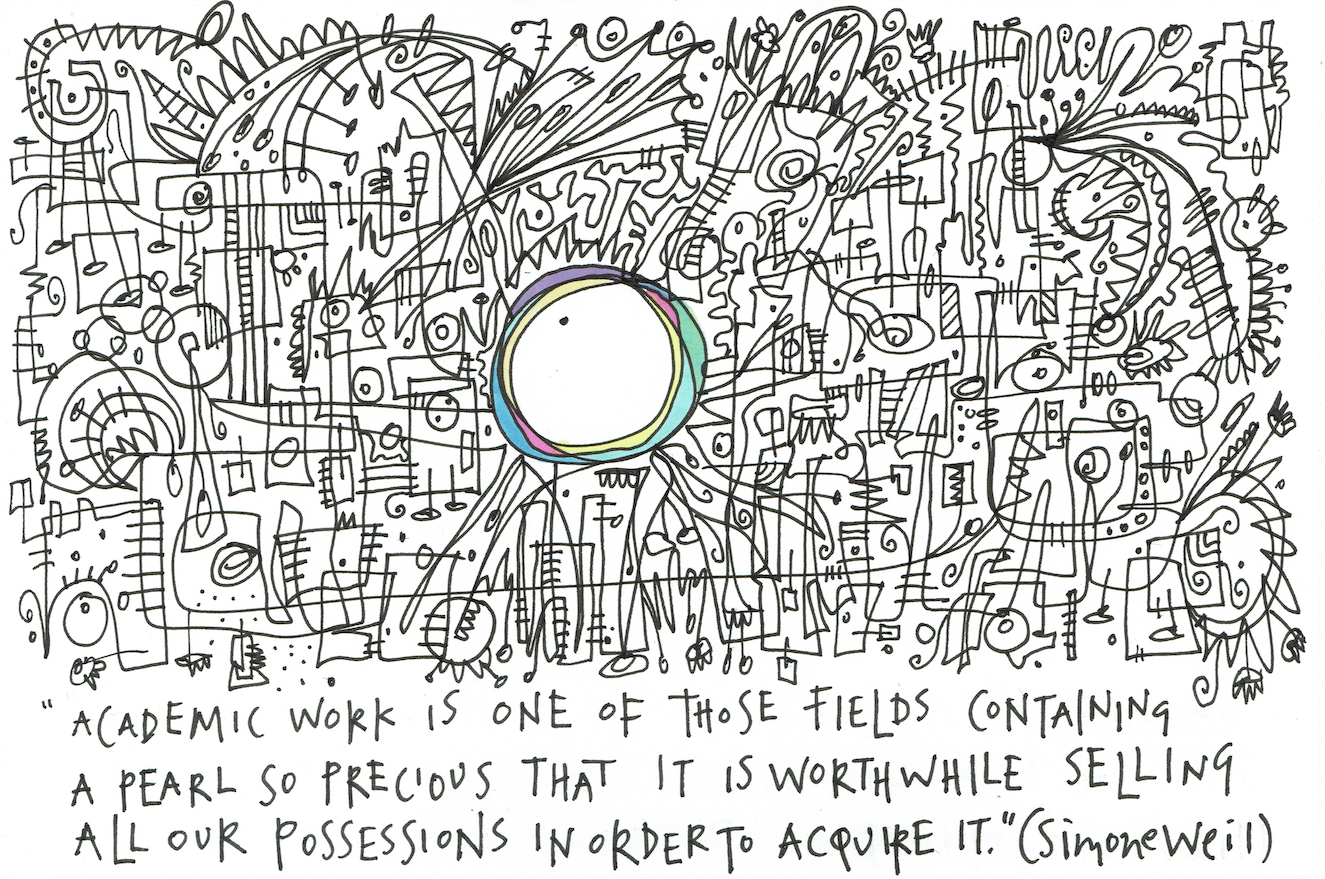 "ACADEMIC WORK IS ONE OF THOSE FIELDS CONTAINING
A PEARL SO PRECIOUS THAT IT IS WORTHWHILE SELLING
ALL OUR POSSESSIONS IN ORDER TO ACQUIRE IT." (Simone Weil)